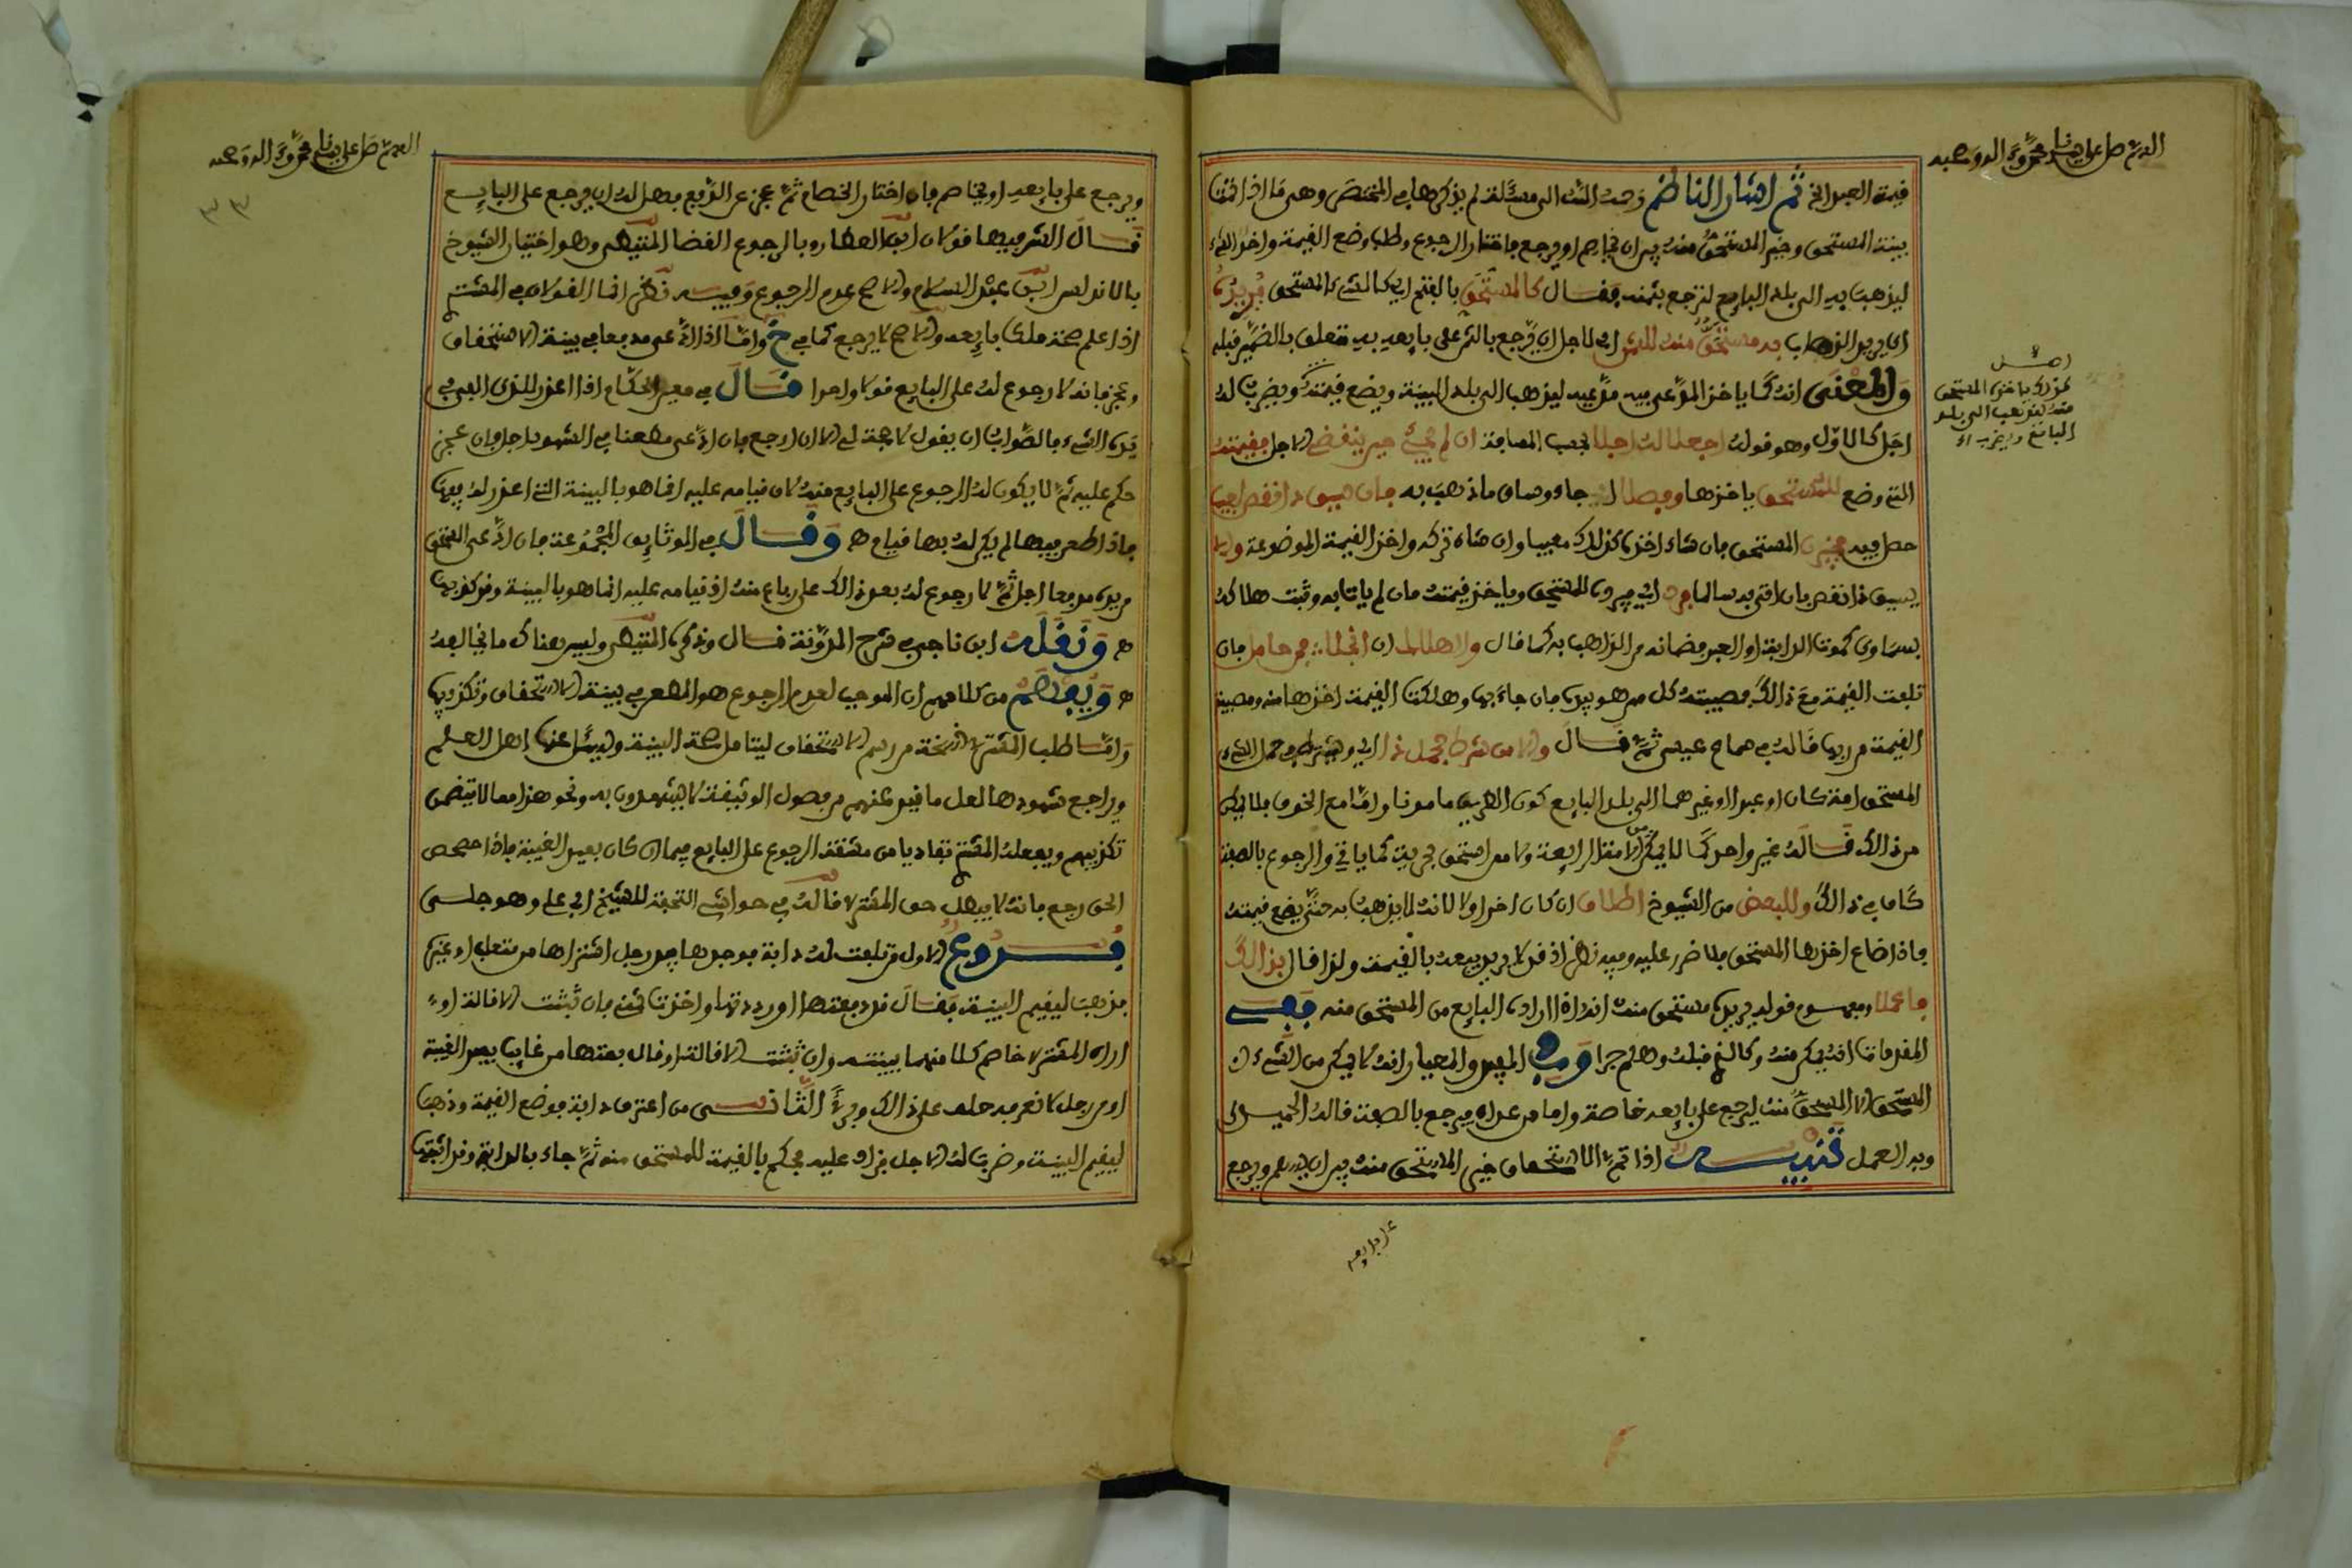 اللهم صل على سيدنا محمد وآله وصحبه
قيمة العبد الخ ثم اشار الناظم رحمه الله الى مسئلة لم يذكرها في المختصر وهي ما اذا اتقنا
بينة المستحق وخير المستحق منه بين ان يخاصم او يرجع فاختار الرجوع وطلب وضع القيمة واخذ الشيء
ليذهب به الى بلد البايع ليرجع بثمنه فقال كالمستحق بالفتح اي كالشيء المستحق يريد
اي يريد الذهاب به مستحق منه للثمن اي لاجل ان يرجع بالثمن على بايعه به متعلق بالضمير قبله
والمعنى انه كما ياخذ المدعى فيه مدعيه ليذهب الى بلد البينة ويضع قيمته ويضرب له
اجل كالاول وهو قوله اجعلا له اجلا بحسب المسافة ان لم يجئ حين ينقضي الاجل فقيمته
التي وضع للمستحق ياخذها وفصلا له جاء وساق ما ذهب به فان يسق ذا نقص لعيب
حصل فيه خيرن المستحق فان شاء اخذه كذلك معيبا وان شاء تركه واخذ القيمة الموضوعة وان لم
يسق ذا نقص بان اتى به سالما اي يرد للمستحق وياخذ قيمته فان لم يات به وثبت هلاكه
بسماوي كموت الدابة او العبد فضمانه من الذاهب به كما قال والاهلاك ان انجلا فمن حامل فان
تلفت القيمة مع ذلك فمصيبته كل من هو بيده فان جاء بها وهلكت القيمة اخذها منه ومصيبة
القيمة من ربها قاله في سماع عيسى ثم قال والامن شرط حمل ذا اي ويشترط في حمل الشيء
المستحق امة كان او عبدا او غيرهما الى بلد البايع كون الطريق مامونا واما مع الخوف فلا يمكن
من ذلك قاله غير واحد كما لا يمكن من مثل الرابعة ولا من استحق بحرية كما ياتي والرجوع بالصفة
كاف في ذلك وللبعض من الشيوخ اطلاق ان كان اخذ اولا لانه لا يذهب به حتى يضع قيمته
فاذا ضاع اخذها المستحق فلا ضرر عليه وفيه نظر اذ قد لا يريد بيعه بالقيمة ولذا قال بذلك
فاعملا ومفهوم قوله يريد مستحق منه انه اذا اراده البايع من المستحق منه ففي
المقدمات انه يمكن منه وكالبايع قبله وهلم جرا وفي المفيد والمعيار انه لا يمكن من الشيء
المستحق الا المستحق منه ليرجع على بايعه خاصة واما من عداه فيرجع بالصفة قاله الجميع
وبه العمل تنبيه اذا تم الاستحقاق خير المستحق منه بين ان يسلم ويرجع
اصل
كذلك ياخذه المستحق
منه ليذهب الى بلد
البايع
اللهم صل على سيدنا محمد وآله وصحبه
٣٣
ويرجع على بايعه او يخاصم فان اختار الخصام ثم عجز عن الدفع فهل له ان يرجع على البايع
قال المشهور فيها قولان ابن العطار وبالرجوع القضا المتيطي وهو اختيار الشيوخ
بالاندلس ابن عبد السلام والاصح عدم الرجوع وفيه نظر انما القولان في المشتري
اذا علم صحة ملك بايعه والاصح لا يرجع كما في خ واما اذا ادعى مدفعا في بينة الاستحقاق
وعجز فانه لا رجوع له على البايع قولا واحدا قال في معين الحكام اذا اعذر للذي الفي
بيده الشيء فالصواب ان يقول لا حجة لي الا ان ارجع فان ادعى مطعنا في الشهود اجل فان عجز
حكم عليه ثم لا يكون له الرجوع على البايع منه لان قيامه عليه انما هو بالبينة التي اعذر له فيها
فاذا طعن فيها لم يكن له بها قيام ه وقال في الوثايق المجموعة فان ادعى المستحق
من يده مدفعا اجل ثم لا رجوع له بعد ذلك على من باع منه اذ قيامه عليه انما هو بالبينة وقد كذبها
ه ونقله ابن ناجي في شرح المدونة قال وذكره المتيطي وليس هناك ما يخالفه
ه ويفهم من كلامهم ان الموجب لعدم الرجوع هو الطعن في بينة الاستحقاق وتكذيبها
واما طلب المشتري نسخة من رسم الاستحقاق ليتامل صحة البينة وليسئل عنها اهل العلم
ويراجع شهودها لعل ما قيد عنهم من فصول الوثيقة لا يشهدون به ونحو هذا مما لا يتضمن
تكذيبهم ويفعله المشتري تفاديا من مشقة الرجوع على البايع فيما ان كان بعيد الغيبة فاذا حصحص
الحق رجع فانه لا يبطل حق المشتري قاله في حواشي التحفة للشيخ ابي علي وهو جلي
فروع الاول من تلفت له دابة فوجدها بيد رجل اشتراها من متعد او غيره
فذهب ليقيم البينة فقال قد بعتها او رددتها واخذت ثمني فان ثبتت الاقالة او
اراد المشتري خاصم كلا منهما ببينته وان ثبتت الاقالة او قال بعتها من غايب بعيد الغيبة
او من رجل لا نعرفه حلف على ذلك وبرئ الثاني من اعترف دابة فوضع القيمة وذهب
ليقيم البينة وضرب له الاجل فزاد عليه فحكم بالقيمة للمستحق منه ثم جاء بالدابة وقد اثبتها